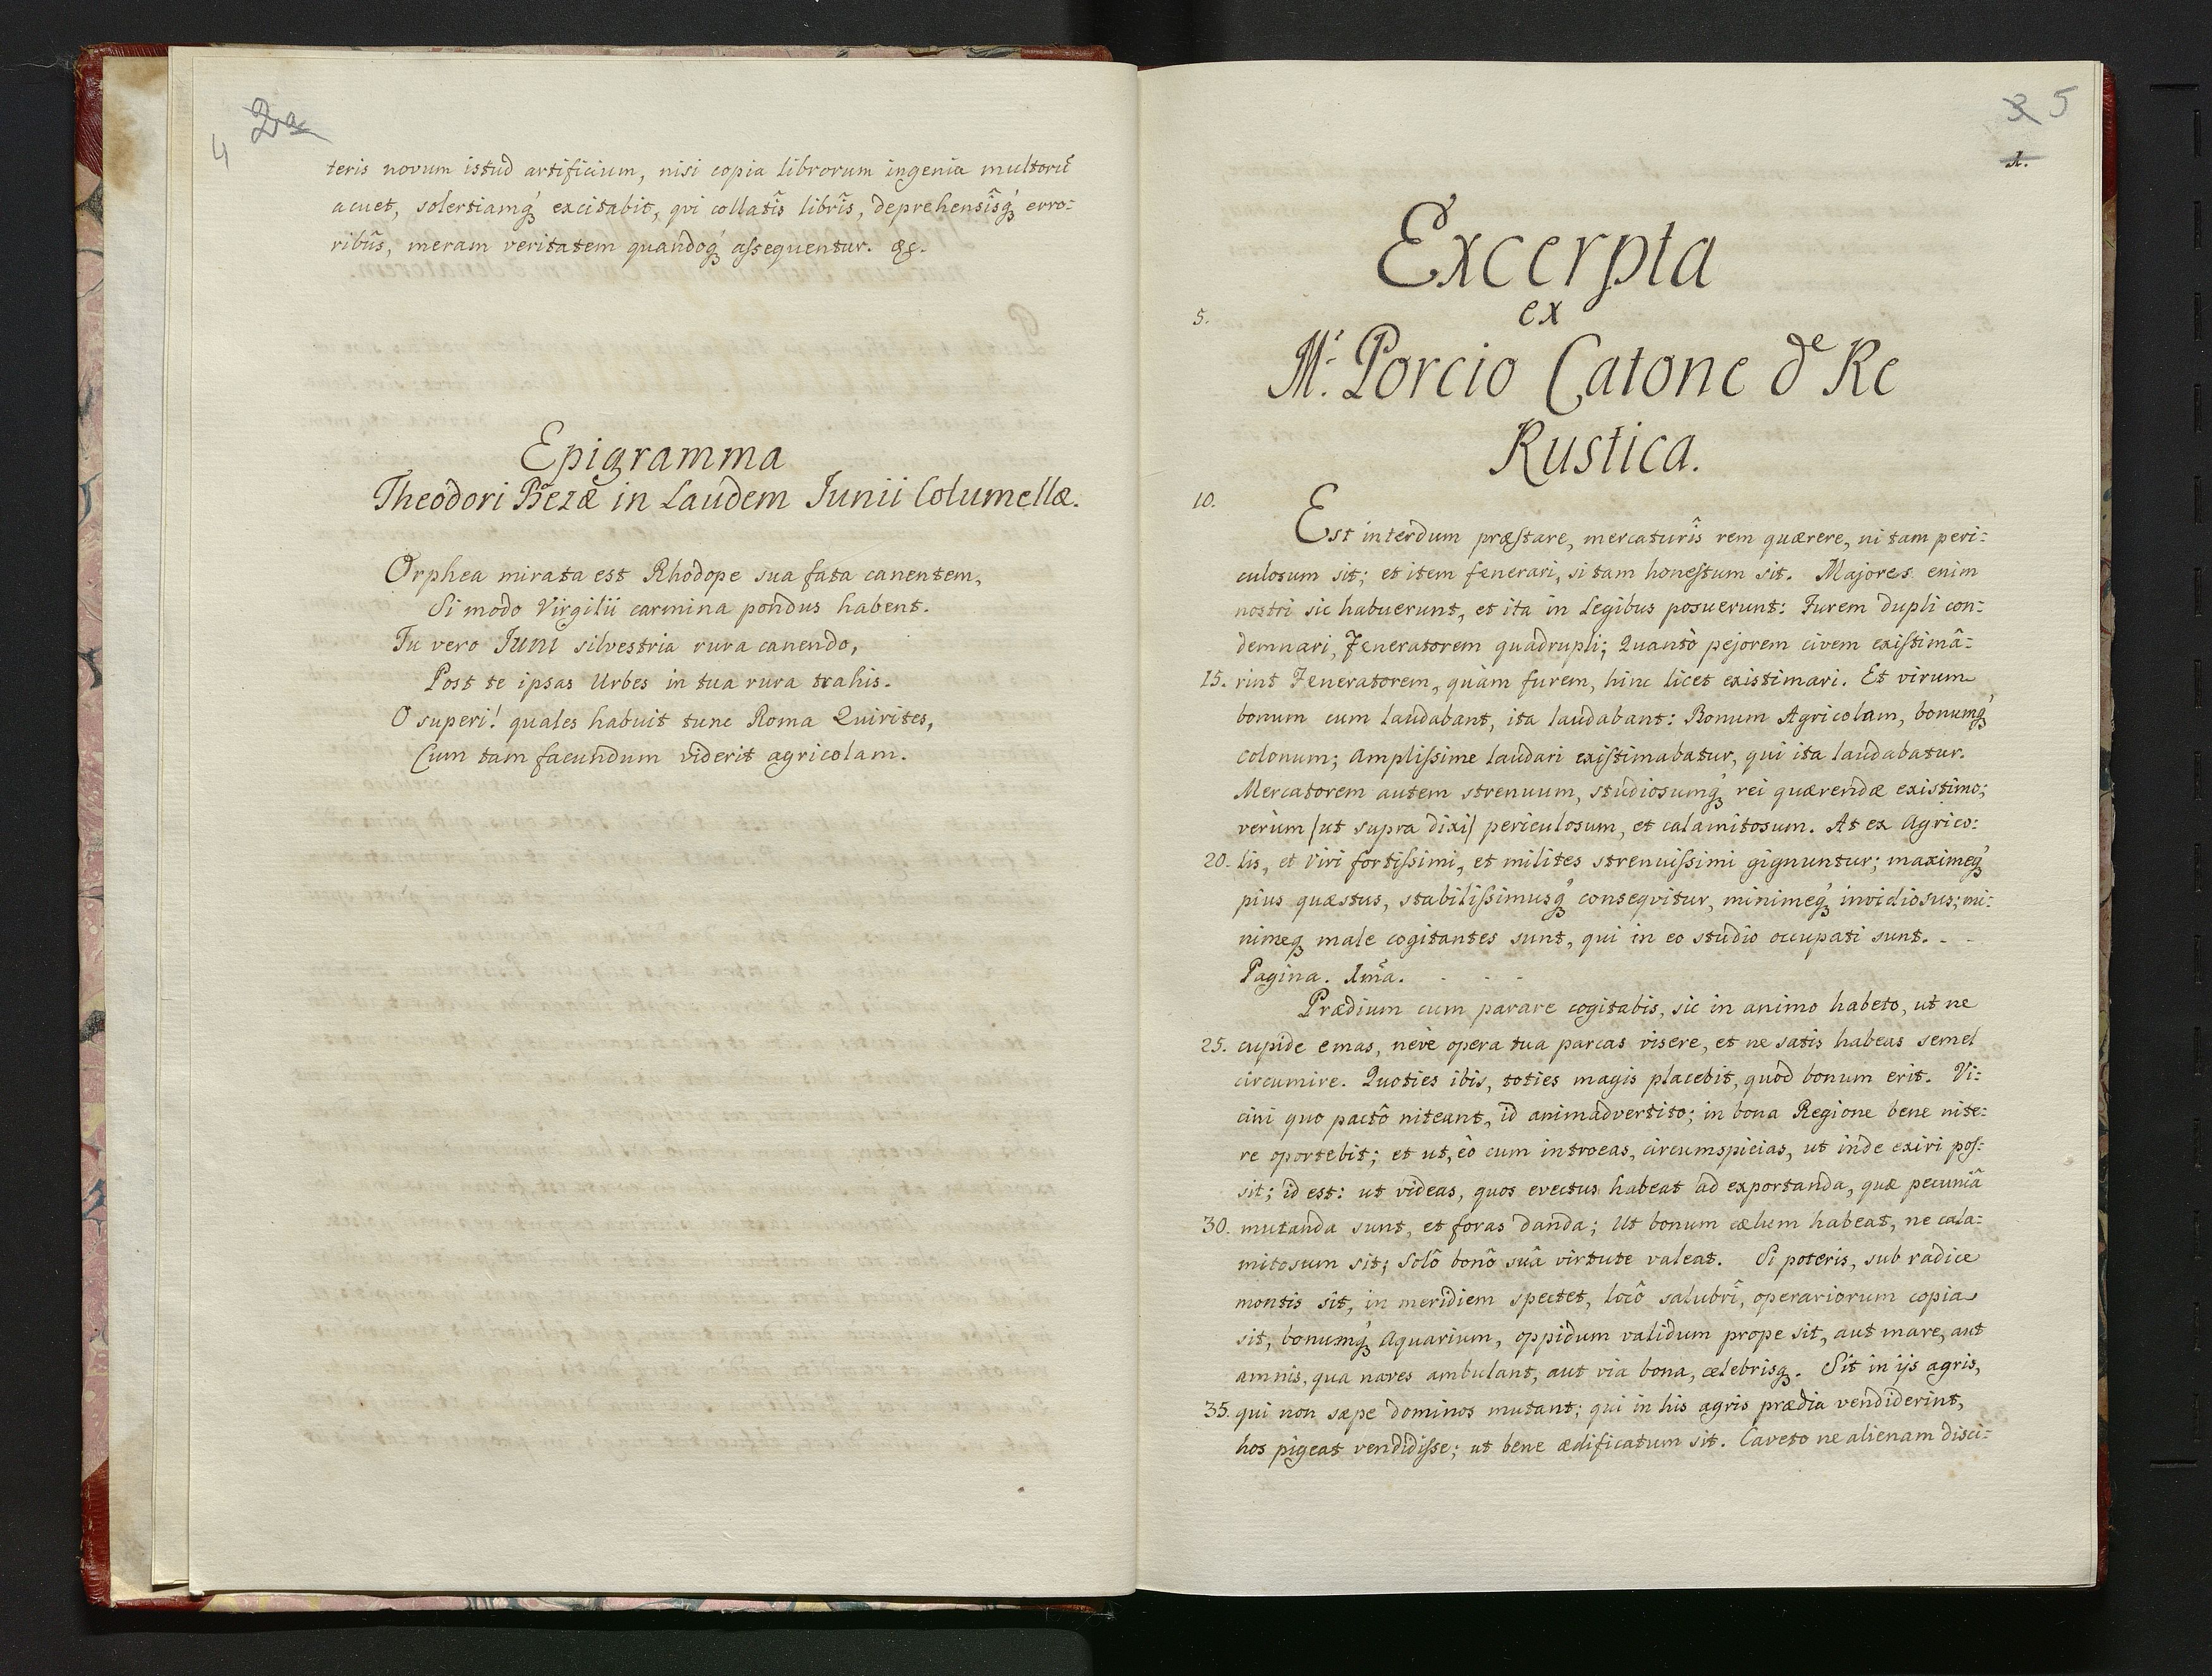 4 2a
teris novum istud artificium, nisi copia librorum ingenia multorū
acuet, solertiamq́ꝫ excitabit, qvi collatîs librîs, deprehensîsq́ꝫ erro:
ribûs, meram veritatem quandoq́ꝫ aſsequentur. &c.
Epigramma
Theodori Bezæ in Laudem Junii Columellæ.
Orphea mirata est Rhodope sua fata canentem,
Si modo Virgilii carmina pondus habent.
Tu vero Juni silvestria rura canendo,
Post te ipsas Urbes in tua rura trahis.
O superi! quales habuit tunc Roma Quirites,
Cum tam facundum viderit agricolam.
3 5
1.
Excerpta
5. ex
M. Porcio Catone de Re
Rustica.
10.
Est interdum præſtare, mercaturîs rem quærere, ni tam peri:
culosum sit; et item fenerari, si tam honeſtum sit. Majores enim
nostri sic habuerunt, et ita in Legibus posuerunt: Furem dupli con:
demnari, Feneratorem quadrupli; Quantò pejorem civem exiſtimâ:
15. rint Feneratorem, quàm furem, hinc licet existimari. Et virum
bonum cum laudabant, ita laudabant: Bonum Agricolam, bonumq́ꝫ
Colonum; Ampliſsime laudari exiſtimabatur, qui ita laudabatur.
Mercatorem autem strenuum, studiosumq́ꝫ rei quærendæ existimo;
verùm /ut supra dixi/ periculosum, et calamitosum. At ex Agrico:
20. lis, et Viri fortiſsimi, et milites strenuiſsimi gignuntur; maximeq́ꝫ
pius quæstus, stabiliſsimusq́ꝫ conseqvitur, minimeq́ꝫ invidiosus; mi:
nimeqꝫ male cogitantes sunt, qui in eo studio occupati sunt. - -
Pagina. 1mâ. - - -
Prædium cum parare cogitabis, sic in animo habeto, ut ne
25. cupide emas, neve opera tua parcas visere, et ne satis habeas semel
circumire. Quoties ibis, toties magis placebit, quod bonum erit. Vi:
cini quo pactô niteant, id animadvertito; in bona Regione bene nite:
re oportebit; et ut, eò cum introeas, circumspicias, ut inde exiri poſ:
sit; id est: ut videas, quos evectus habeat ad exportanda, quæ pecuniâ
30. mutanda sunt, et foras danda; Ut bonum cælum habeat, ne cala:
mitosum sit; Solô bonô suâ virtute valeat. Si poteris, sub radice
montis sit, in meridiem spectet, locô salubrî, operariorum copia
sit, bonumq́ꝫ Aquarium, oppidum validum prope sit, aut mare, aut
amnis, qua naves ambulant, aut via bona, celebrisqꝫ. Sit in ijs agris,
35. qui non sæpe dominos mutant; qui in his agris prædia vendiderint,
hos pigeat vendidiſse; ut bene ædificatum sit. Caveto ne alienam disci: